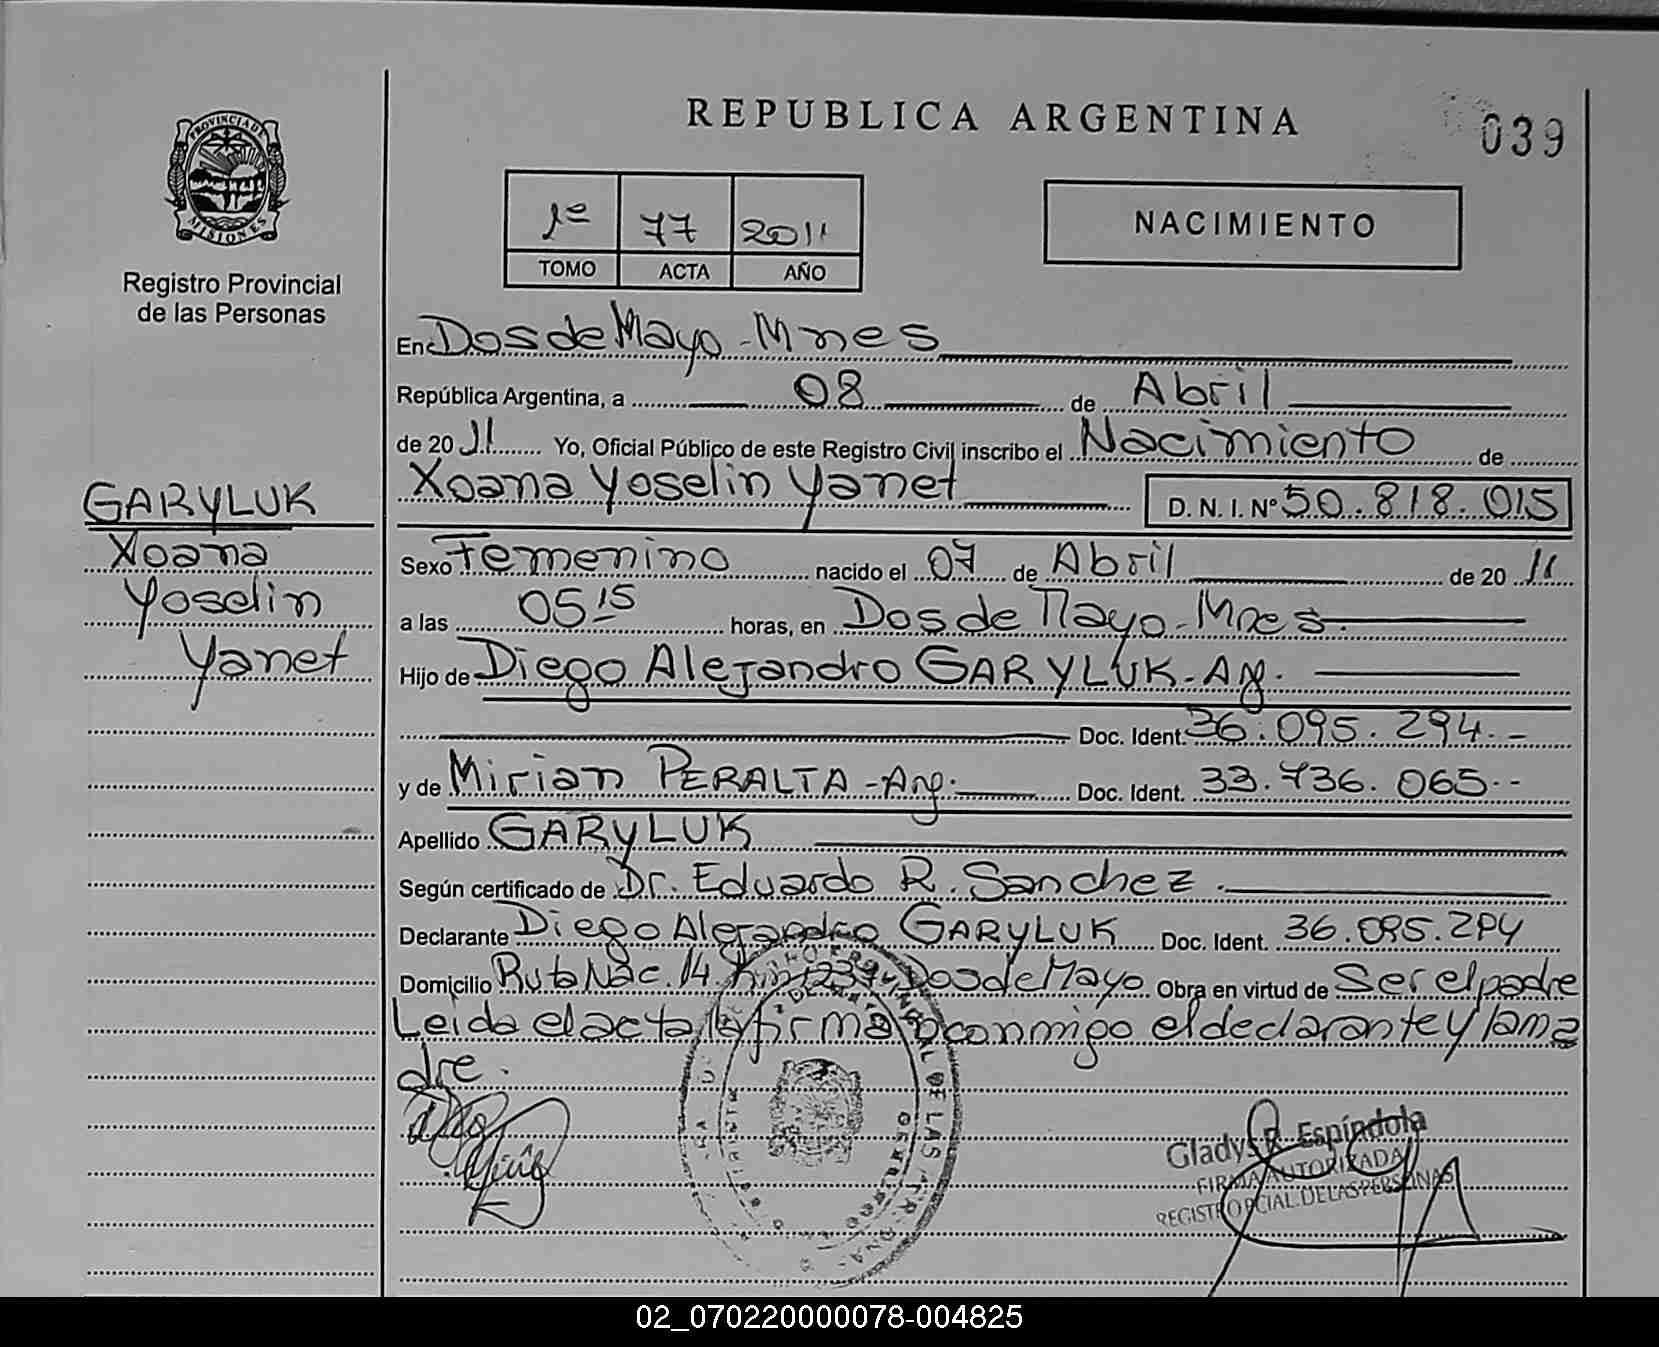 REPUBLICA ARGENTINA
039
PROVINCIA DE
MISIONES
Registro Provincial
de las Personas
1º 77 2011
TOMO ACTA AÑO
NACIMIENTO
En Dos de Mayo - Mnes
República Argentina, a 08 de Abril
de 20 11 Yo, Oficial Público de este Registro Civil inscribo el Nacimiento de
Xoana Yoselin Yanet D. N. I. Nº 50.818.015
GARYLUK
Xoana
Yoselin
Yanet
Sexo Femenino nacido el 07 de Abril de 20 11
a las 05 15 horas, en Dos de Mayo - Mnes.
Hijo de Diego Alejandro GARYLUK - Arg.
Doc. Ident. 36.095.294.-
y de Mirian PERALTA - Arg. Doc. Ident. 33.736.065.-
Apellido GARYLUK
Según certificado de Dr. Eduardo R. Sanchez.
Declarante Diego Alejandro GARYLUK Doc. Ident. 36.095.294
Domicilio Ruta Nac. 14 Km 1237 Dos de Mayo Obra en virtud de Ser el padre
Leida el acta la firma conmigo el declarante y la ma
dre.
Gladys R. Espíndola
FIRMA AUTORIZADA
REGISTRO PCIAL. DE LAS PERSONAS
02_070220000078-004825